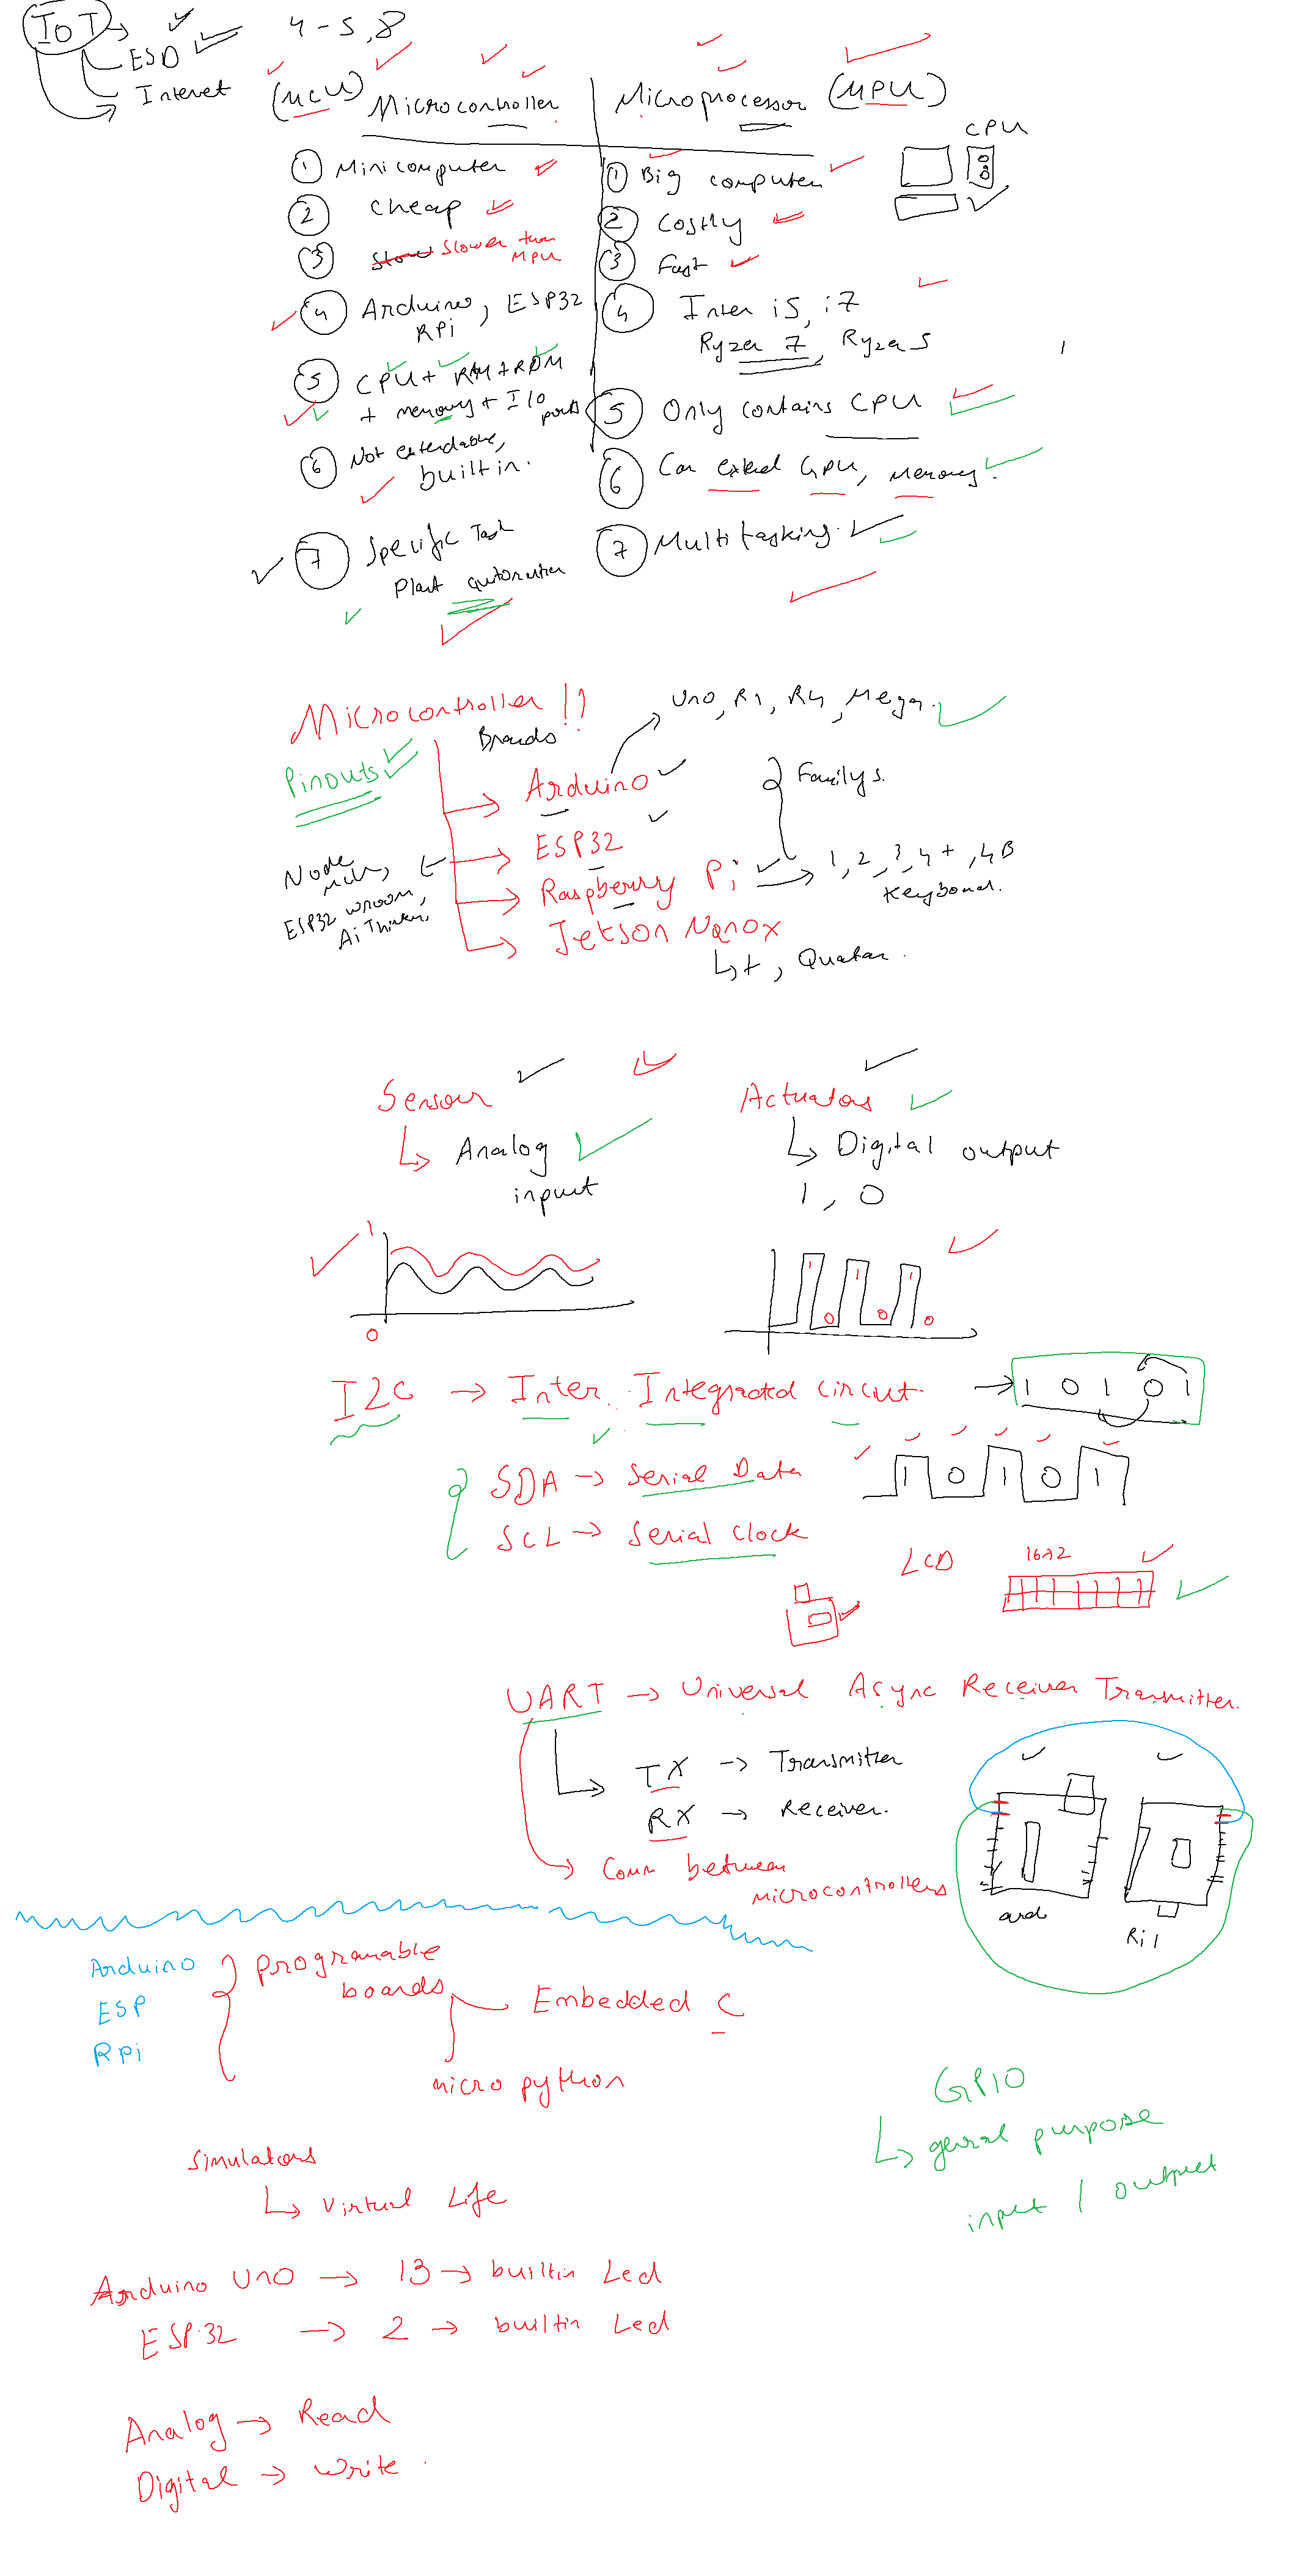 IoT
4-5,8
ESD
Internet
(MCU) Microcontroller
Microprocessor (MPU)
CPU
1 Minicomputer
1 Big computer
2 Cheap
2 Costly
3 Slower than
MPU
3 Fast
4 Arduino, ESP32
RPi
4 Inter i5, i7
Ryzen 7, Ryzen 5
5 CPU + RAM + ROM
+ memory + I/O
ports
5 Only contains CPU
6 Not extendable,
built in.
6 Can extend GPU, Memory.
7 Specific Task
Plant automation
7 Multitasking.
Microcontroller !!
Brands
Uno, R3, R4, Mega.
Pinouts
Arduino
Familys.
ESP32
Node
Mcu,
ESP32 wroom,
Ai Thinker,
Raspberry Pi
1, 2, 3, 4+, 4B
Keyboard.
Jetson Nanox
+,
Sensor
Actuators
Analog
input
Digital output
1, 0
1
0
1 0 1 0 1 0
I2C → Inter Integrated circuit.
1 0 1 0 1
SDA → Serial Data
1 0 1 0 1
SCL → Serial Clock
LCD
16x2
UART → Universal Async Receiver Transmitter.
TX → Transmitter
RX → Receiver.
Comm between
microcontrollers
ard
Arduino
ESP
Rpi
Programable
boards
Embedded C
micro python
GPIO
genral purpose
input / output
Simulators
Virtual Life
Arduino Uno → 13 → builtin Led
ESP32 → 2 → builtin Led
Analog → Read
Digital → Write.